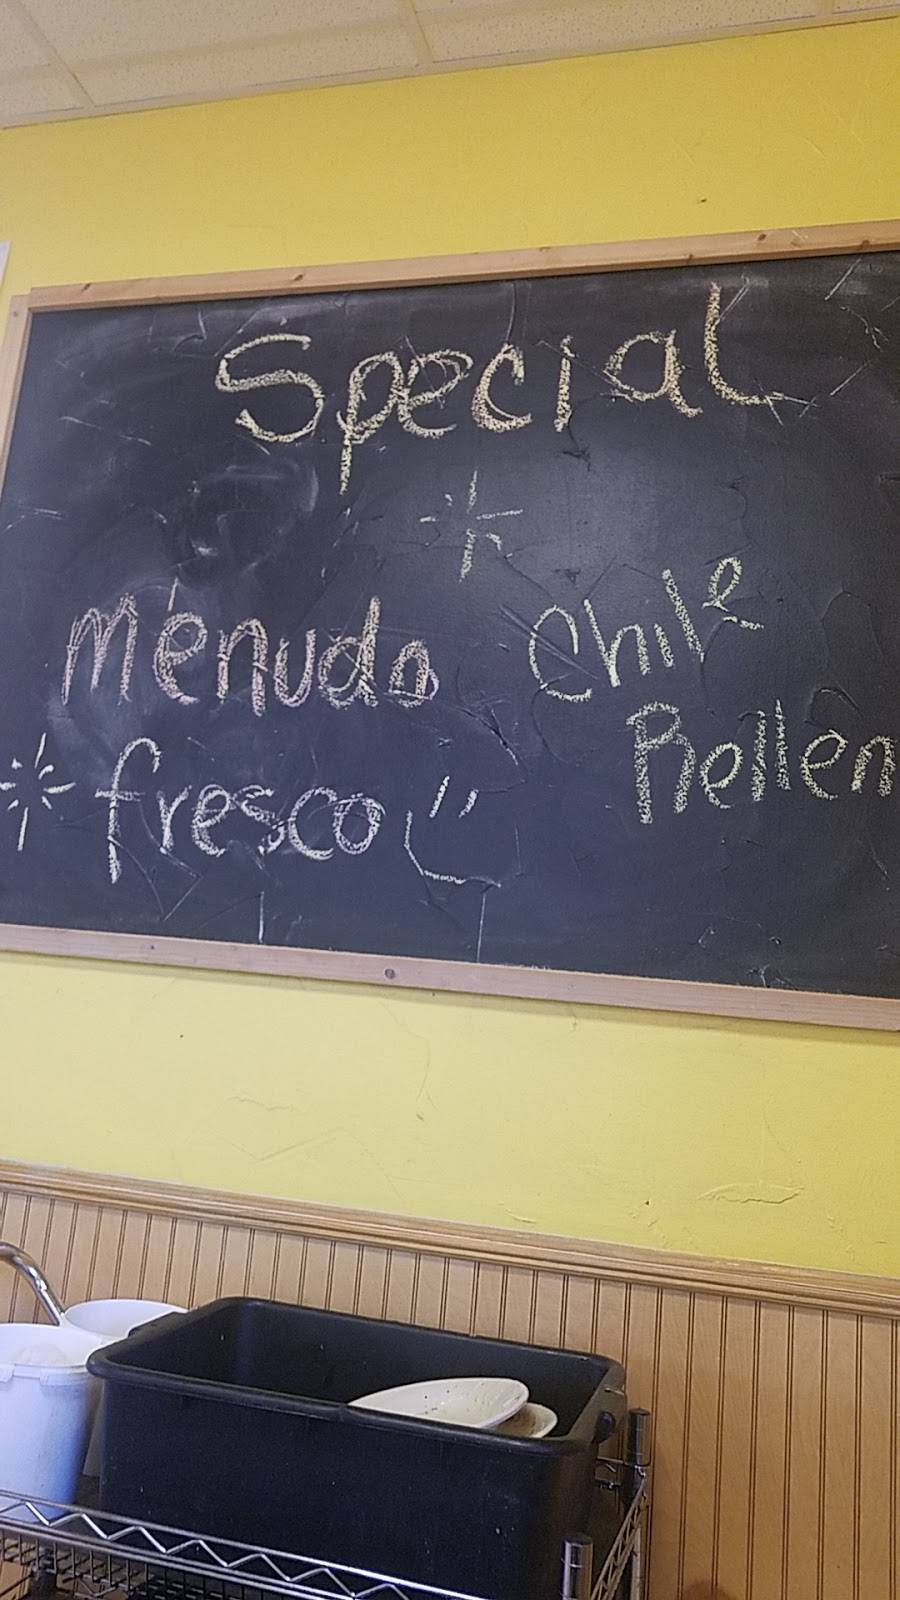 Special
Menudo
fresco
Chile
Rellen